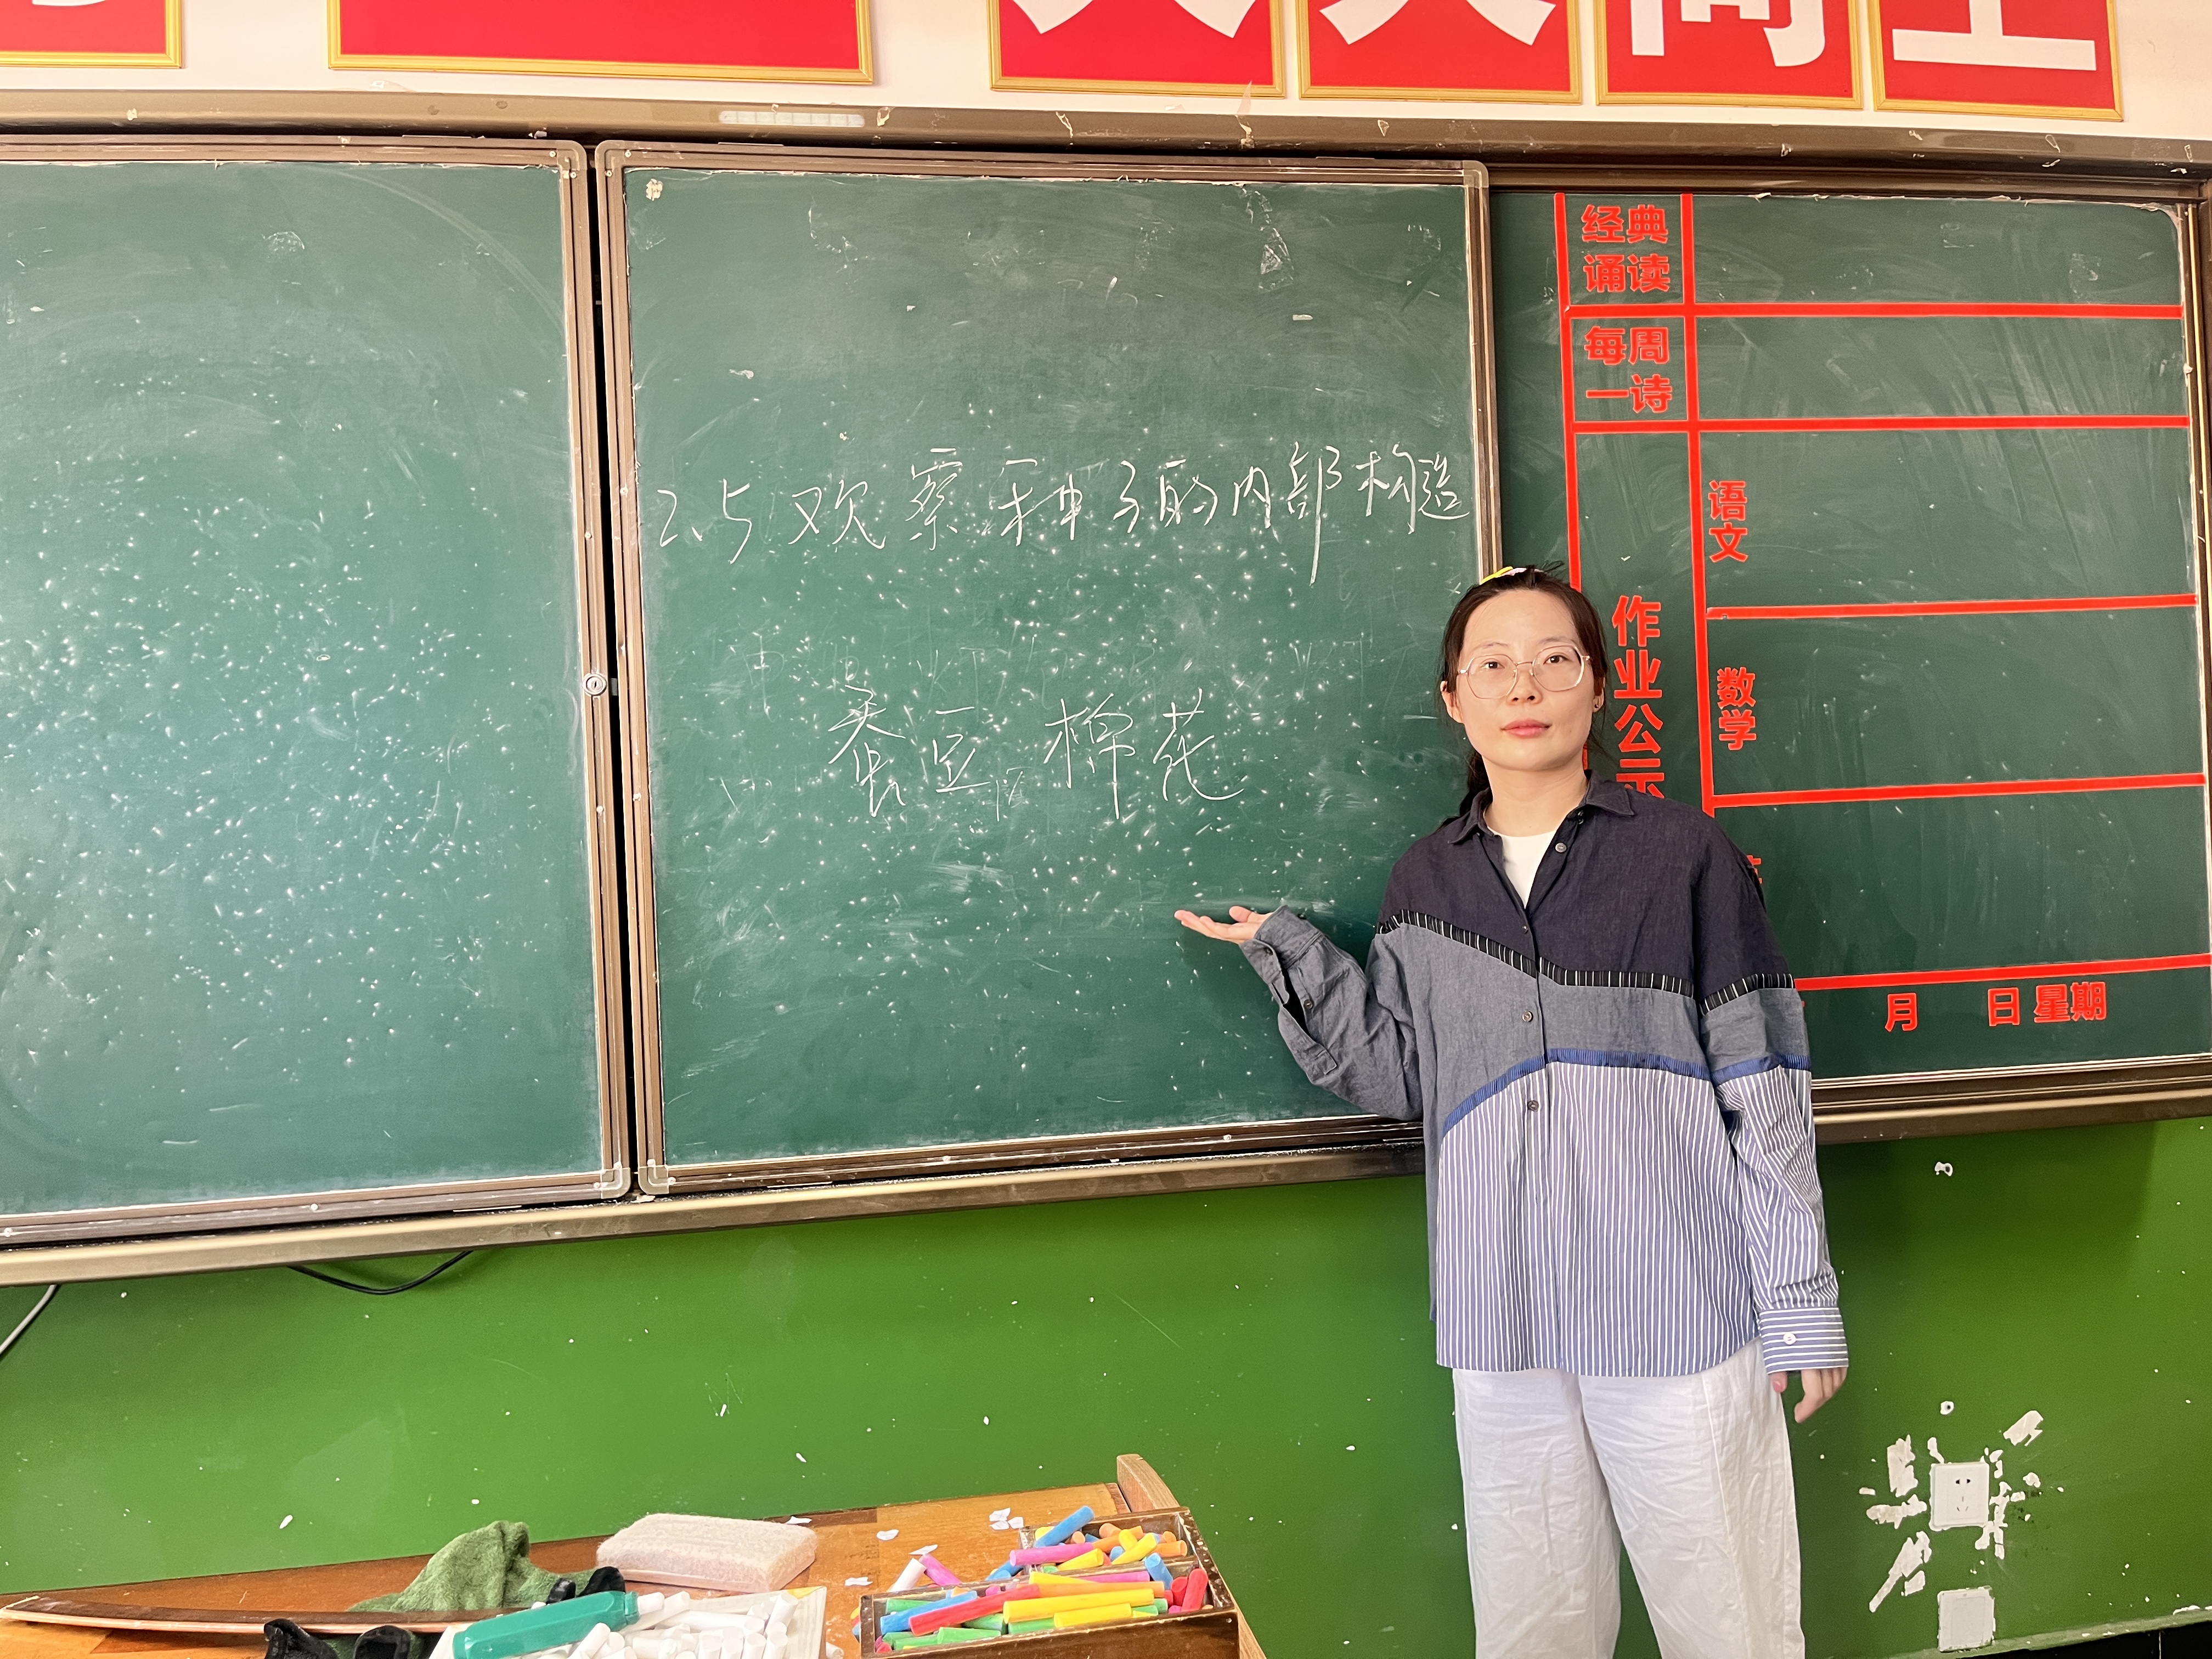 天天向上
2.5 观察种子的内部构造
蚕豆 棉花
经典
诵读
每周
一诗
作业公示
语文
数学
月 日 星期